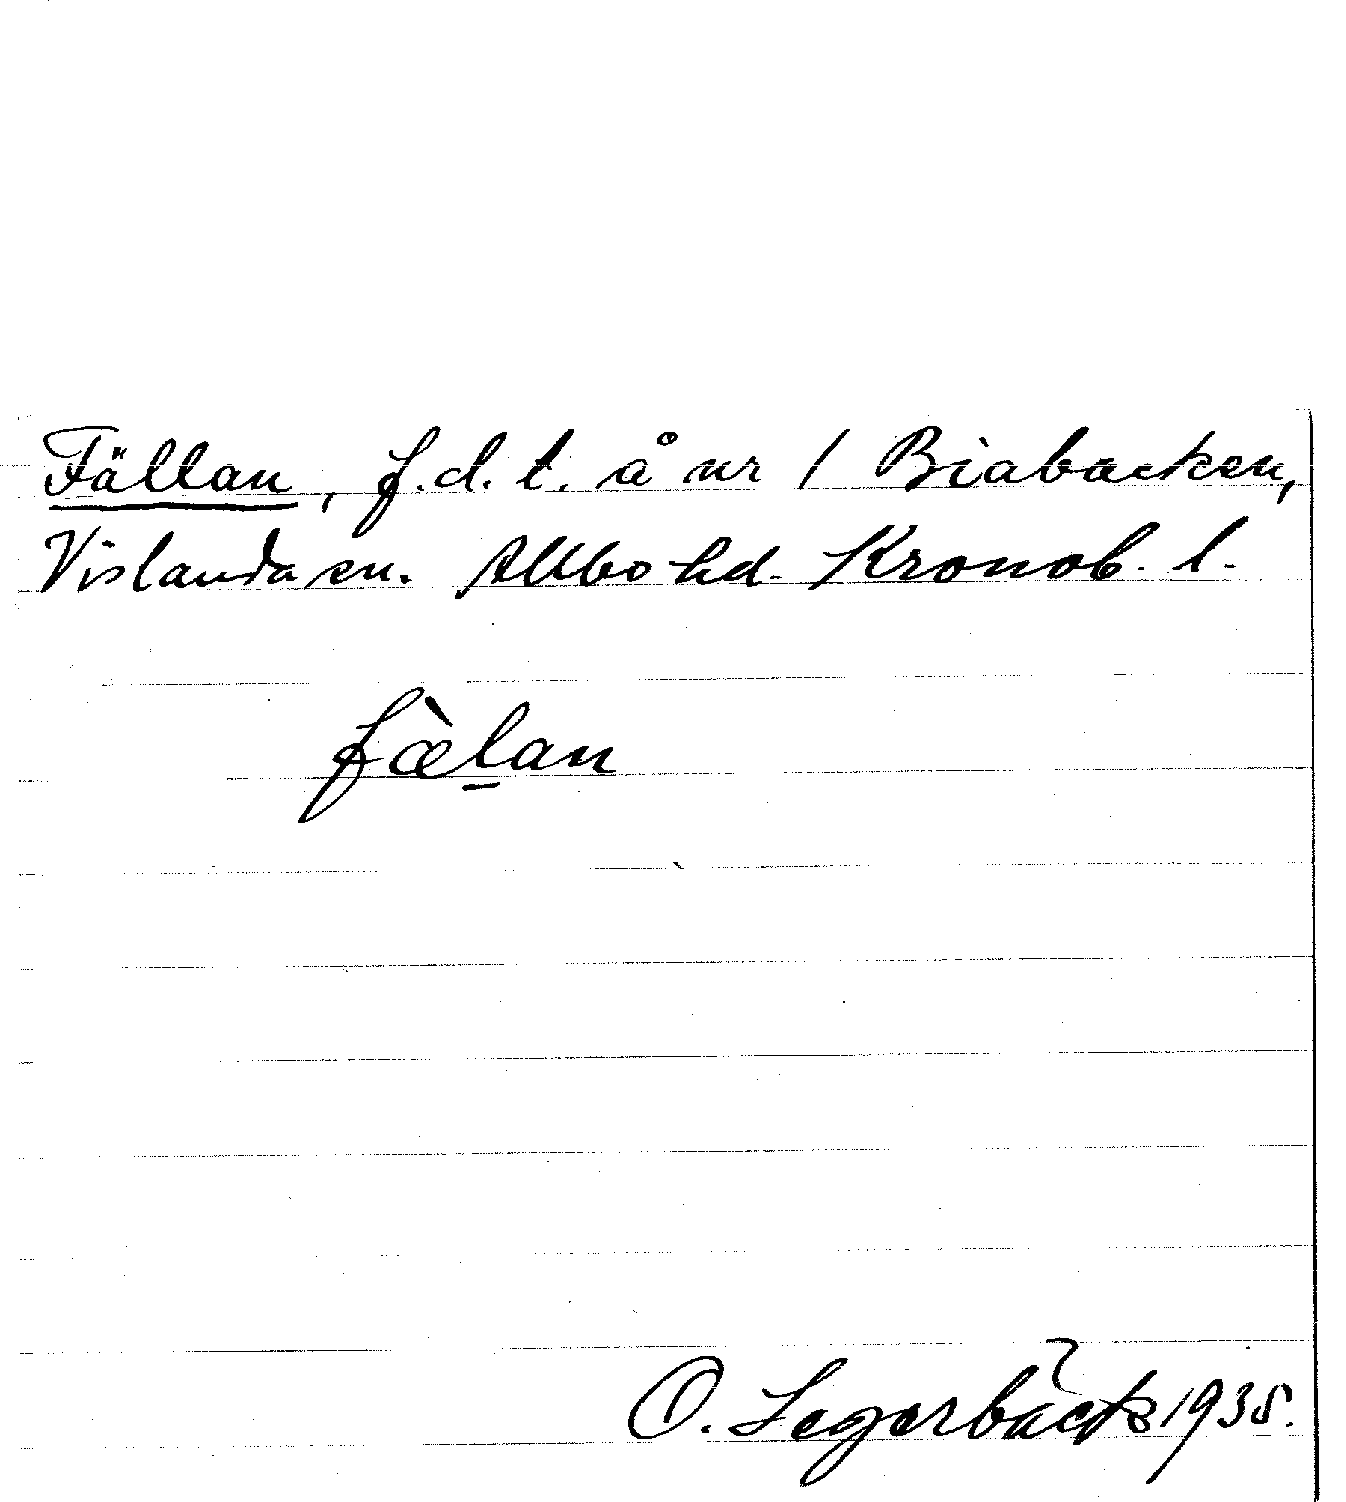 Fällan, f.d.t. å nr 1 Biabacken,
Vislanda sn. Allbo hd. Kronob. l.
fæ̀l̠an
O. Segerbäck 1935.